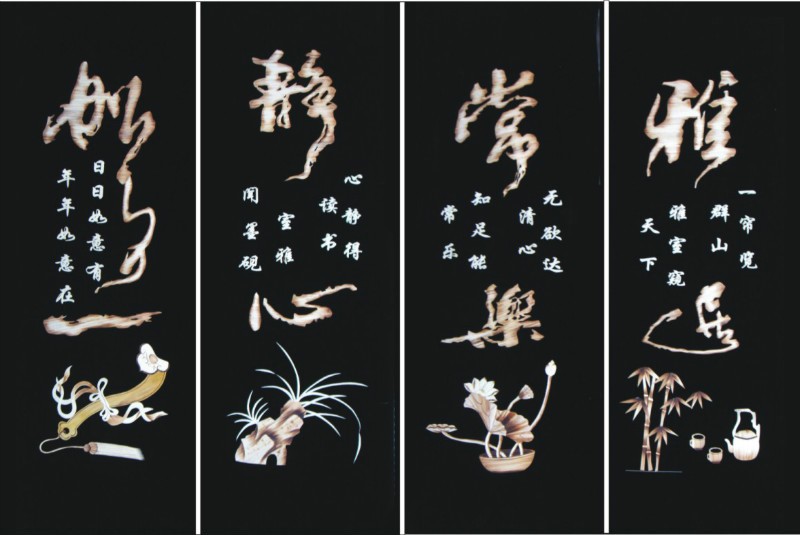 雅
一帘览
群山
雅室窥
天下
常樂
无欲达
清心
知足能
常乐
静心
心静得
读书
室雅
闻墨砚
日日如意有
年年如意在